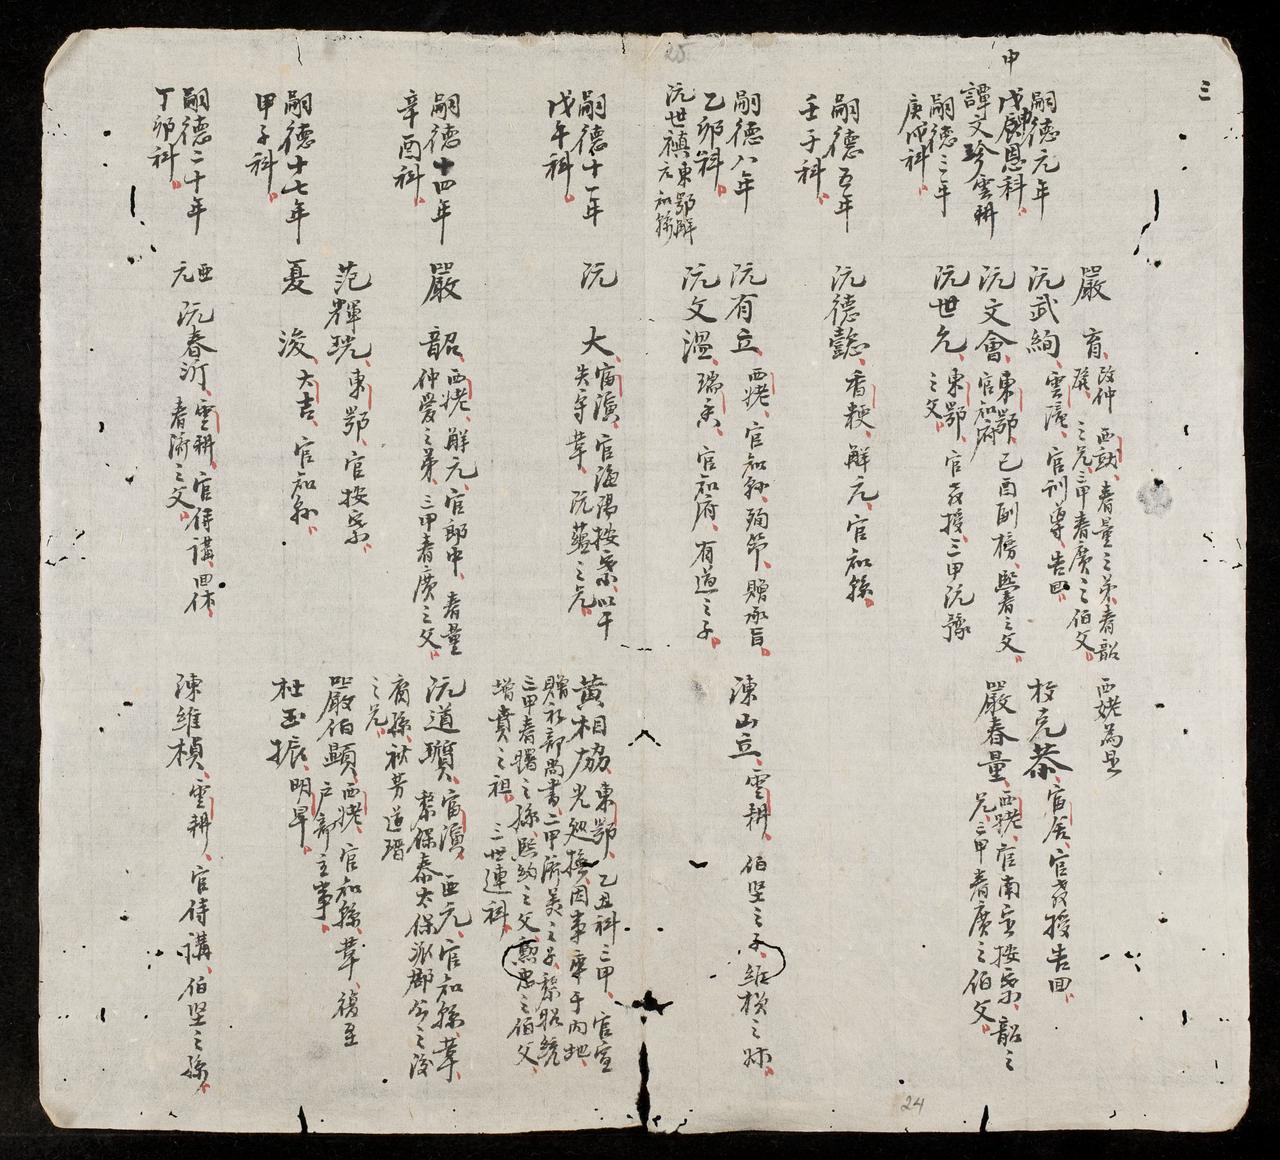 三
嗣德元年
申
戊申恩科
譚文珍雲耕
嗣德三年
庚戌科
嗣德五年
壬子科
嗣德八年
乙卯科
阮世禎東鄂解元知縣
嗣德十一年
戊午科
嗣德十四年
辛酉科
嗣德十七年
甲子科
嗣德二十年
丁卯科
嚴育
改仲 西姥春量之弟春韶
之兄三甲春廣之伯父
阮武絢 雲 官訓導告回
阮文會 東鄂己酉副榜熙春之父
官知府
阮世允 東鄂官教授三甲阮豫
之父
阮德懿 香粳解元官知縣
阮有立 西姥官知縣殉節贈承旨
阮文溫 瑞香官知府有道之子
阮大 富演官海陽按察以干
失守革 阮蘊之兄
嚴韶 西姥解元官郎中春量
仲愛之弟三甲春廣之父
范輝珖 東鄂官按察
憂浚 大吉官知縣
亞元 阮春沂 雲耕官侍講回休
春術之父
西姥為是
枚克恭 富舍官教授告回
嚴春量 西姥官南定按察韶之
兄三甲春廣之伯父
陳山立 雲耕 伯堅之子維楨之
黃相協 東鄂乙丑科三甲官宣
光巡撫因事卒于內地
贈禮部尚書二甲濟美之子黎昭統
三甲春 之孫熙約之父勲忠之伯父
增賁之祖 三世連科
阮道 富演亞元官知縣革
黎保泰太保派郡公之後
富孫秋芳道瑨
之兄
嚴伯顯 西姥官知縣革復至
戶部主事
杜玉振 明早
陳維楨 雲耕 官侍講伯堅之孫
25
24